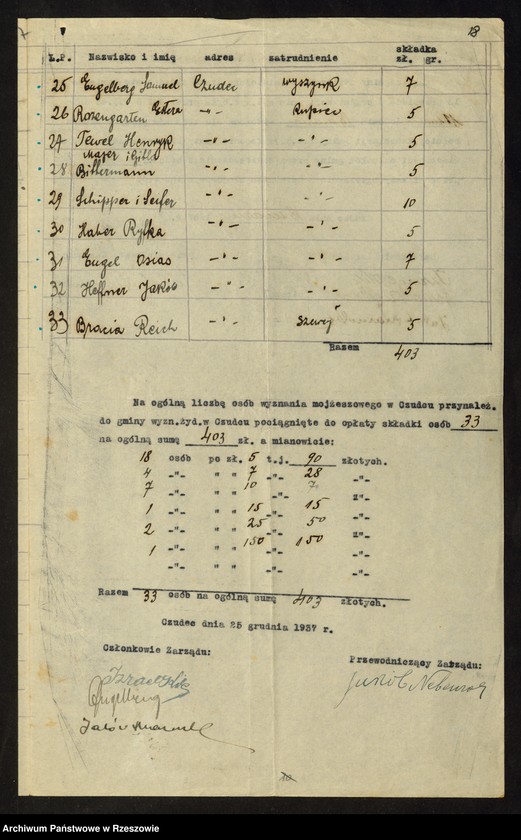 18
L.P. Nazwisko i imię adres zatrudnienie składka zł. gr.
25 Engelberg Samuel Czudec wyszynk 7
26 Rozengarten Estera -"- kupiec 5
27 Tewel Henryk -"- -"- 5
Majer i Gitla
28 Bittermann -"- -"- 5
29 Schipper i Seifer -"- -"- 10
30 Haber Ryfka -"- -"- 5
31 Engel Osias -"- -"- 7
32 Heffner Jakób -"- -"- 5
33 Bracia Reich -"- szewc 5
Razem 403
Na ogólną liczbę osób wyznania mojżeszowego w Czudcu przynależ.
do gminy wyzn.żyd.w Czudcu pociągnięte do opłaty składki osób 33
na ogólną sumę 403 zł. a mianowicie:
18 osób po zł. 5 t.j. 90 złotych.
4 -"- " " 7 28 -"-
7 -"- " " 10 -"-
1 -"- " " 15 15 -"-
2 -"- " " 25 50 -"-
1 -"- " " 150 150 -"-
-"- " " -"-
Razem 33 osób na ogólną sumę 403 złotych.
Czudec dnia 25 grudnia 1937 r.
Członkowie Zarządu:
Przewodniczący Zarządu:
Izrael
Engelberg
Jakób
Archiwum Państwowe w Rzeszowie